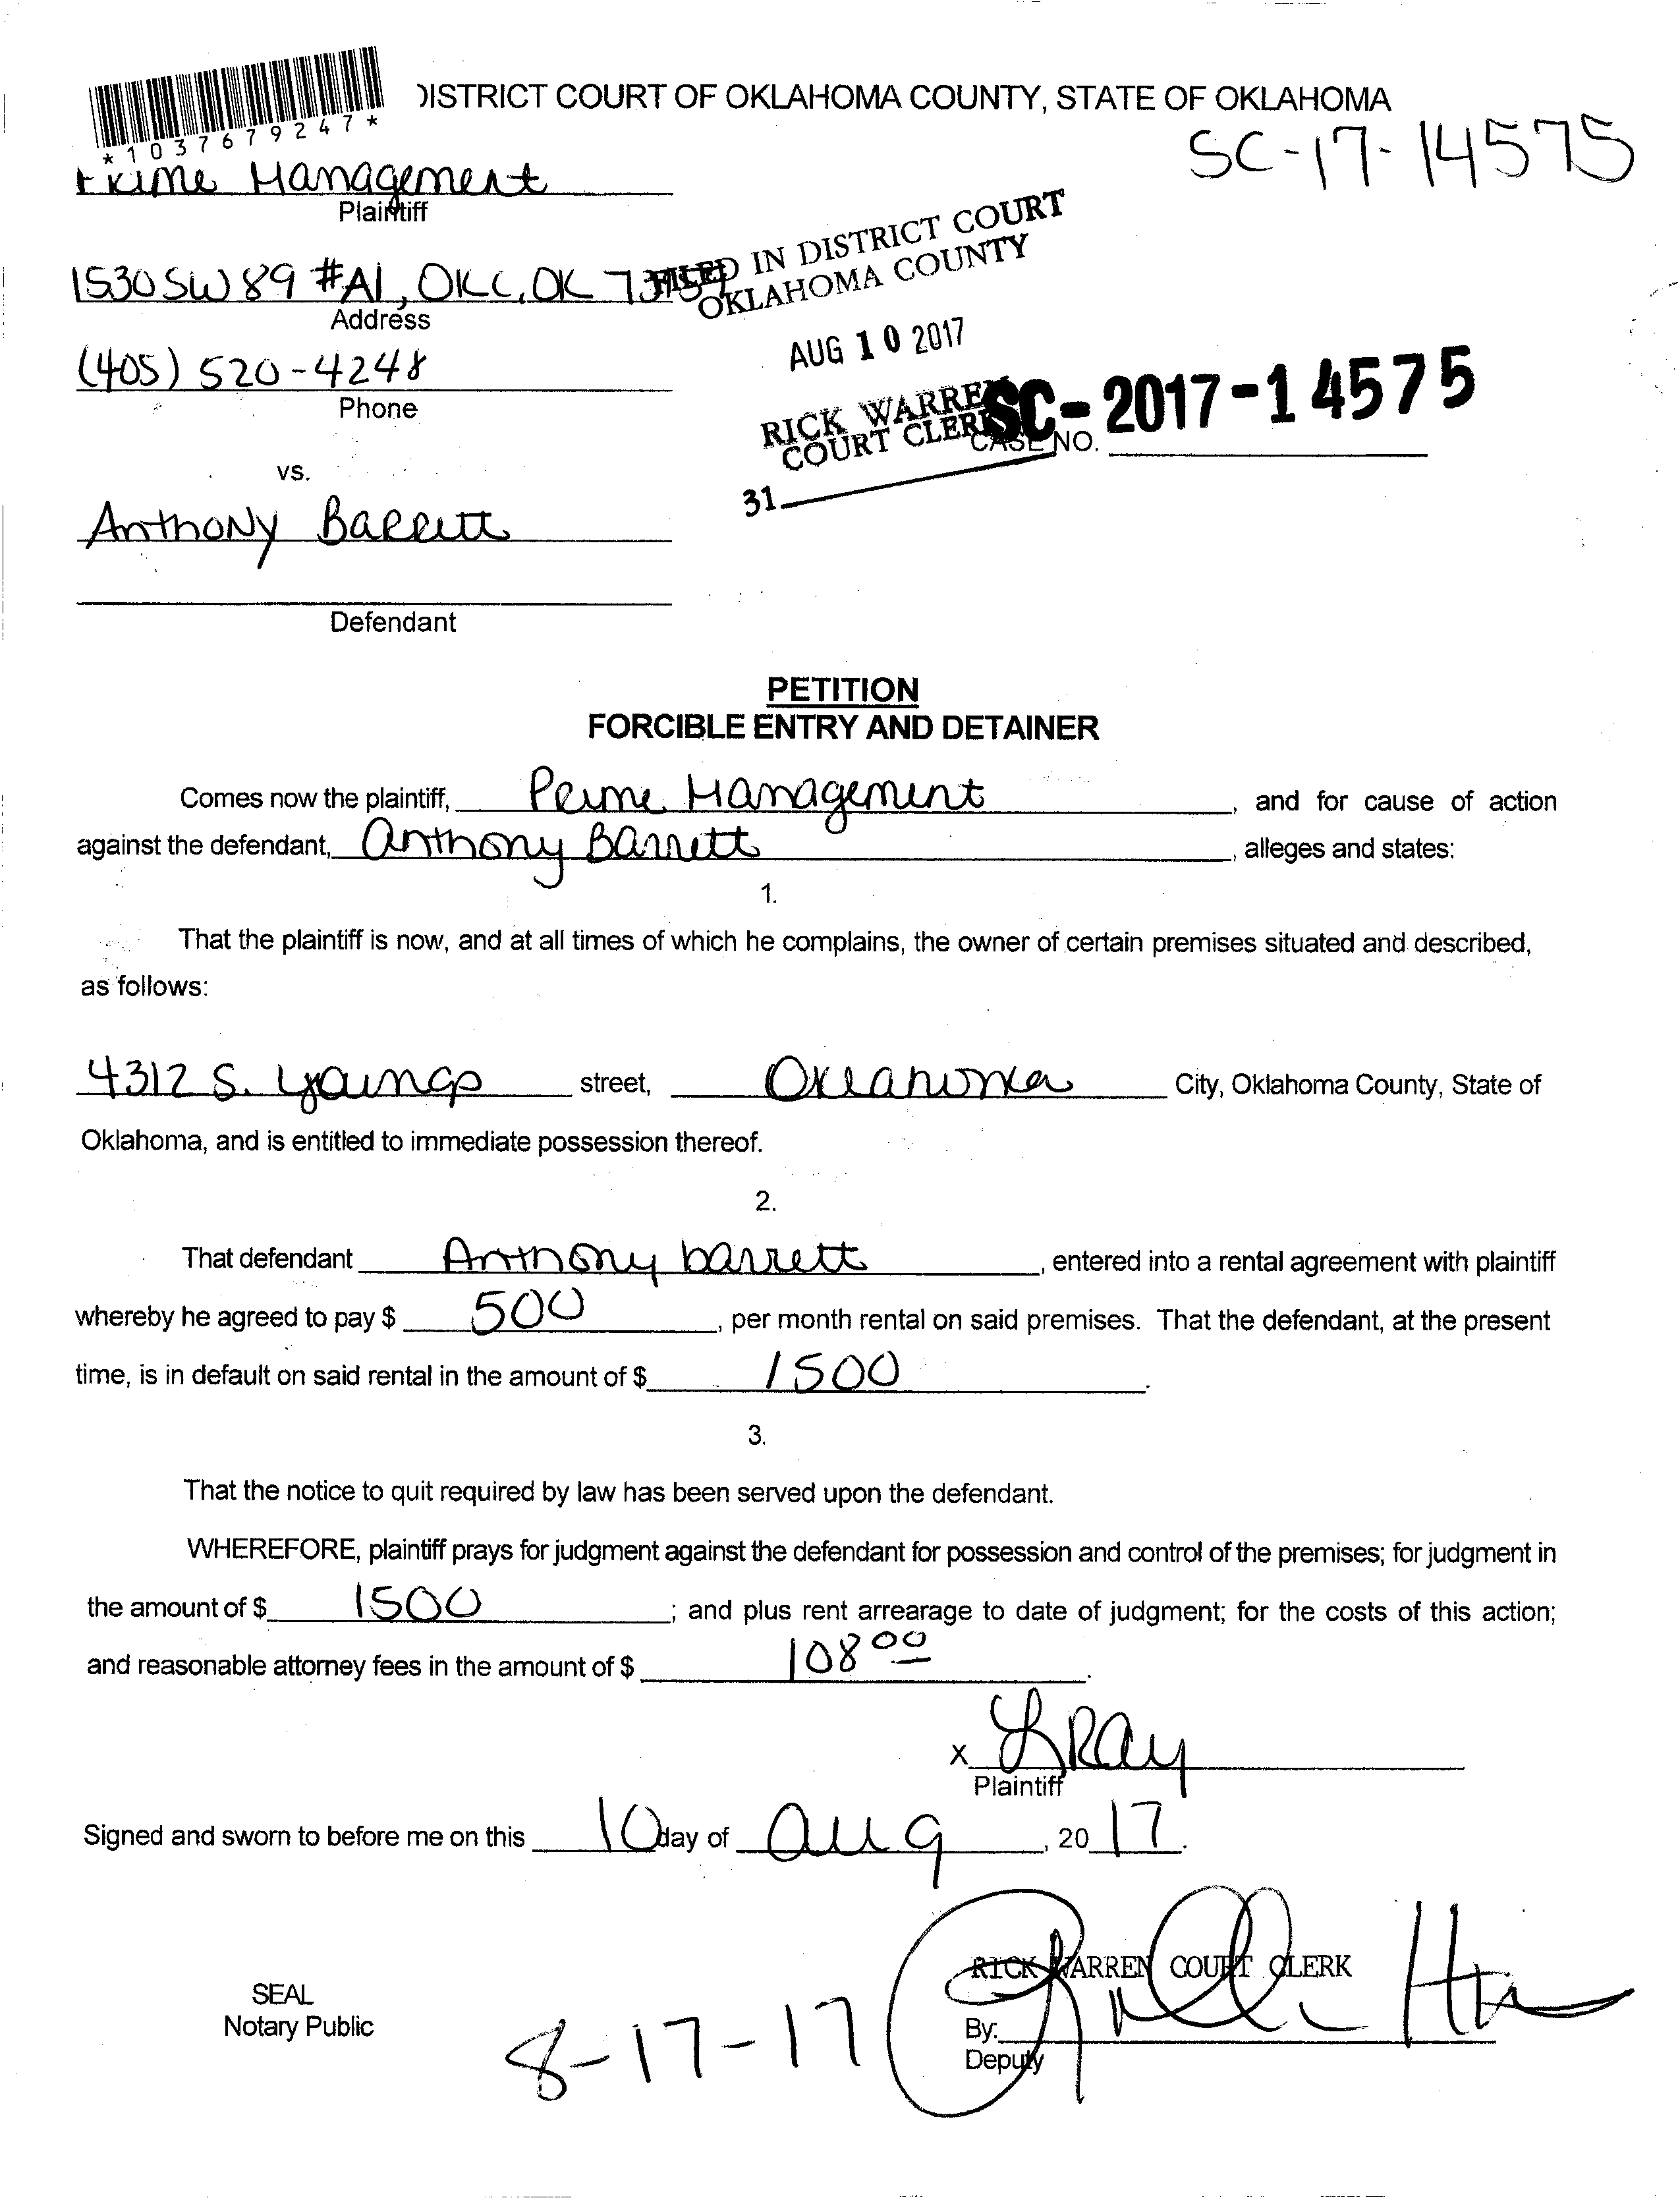 DISTRICT COURT OF OKLAHOMA COUNTY, STATE OF OKLAHOMA
*1037679247*
SC-17-14575
Prime Management
Plaintiff
1530 SW 89 #A1, OKC, OK
Address
FILED IN DISTRICT COURT
OKLAHOMA COUNTY
AUG 10 2017
(405) 520-4248
Phone
RICK WARREN
COURT CLERK
SC-2017-14575
CASE NO.
31
vs.
Anthony Barrett
Defendant
PETITION
FORCIBLE ENTRY AND DETAINER
Comes now the plaintiff, Prime Management, and for cause of action
against the defendant, Anthony Barrett, alleges and states:
1.
That the plaintiff is now, and at all times of which he complains, the owner of certain premises situated and described,
as follows:
4312 S. Youngs street, Oklahoma City, Oklahoma County, State of
Oklahoma, and is entitled to immediate possession thereof.
2.
That defendant Anthony barrett, entered into a rental agreement with plaintiff
whereby he agreed to pay $ 500, per month rental on said premises. That the defendant, at the present
time, is in default on said rental in the amount of $ 1500.
3.
That the notice to quit required by law has been served upon the defendant.
WHEREFORE, plaintiff prays for judgment against the defendant for possession and control of the premises; for judgment in
the amount of $ 1500; and plus rent arrearage to date of judgment; for the costs of this action;
and reasonable attorney fees in the amount of $ 108 00.
X LRay
Plaintiff
Signed and sworn to before me on this 10 day of Aug, 20 17.
RICK WARREN COURT CLERK
SEAL
Notary Public
8-17-17
By:
Deputy